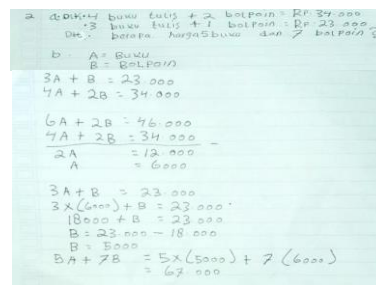 2 a. Dik: 4 buku tulis + 2 bolpoin = Rp. 34.000
• 3 buku tulis + 1 bolpoin = Rp. 23.000
Dit: berapa harga 5 buku dan 7 bolpoin
b. A = BUKU
B = BOLPOIN
3A + B = 23.000
4A + 2B = 34.000
6A + 2B = 46.000
4A + 2B = 34.000 -
2A = 12.000
A = 6000
3A + B = 23.000
3 x (6000) + B = 23.000
18000 + B = 23.000
B = 23.000 - 18.000
B = 5000
5A + 7B = 5x(5000) + 7 (6000)
= 67.000